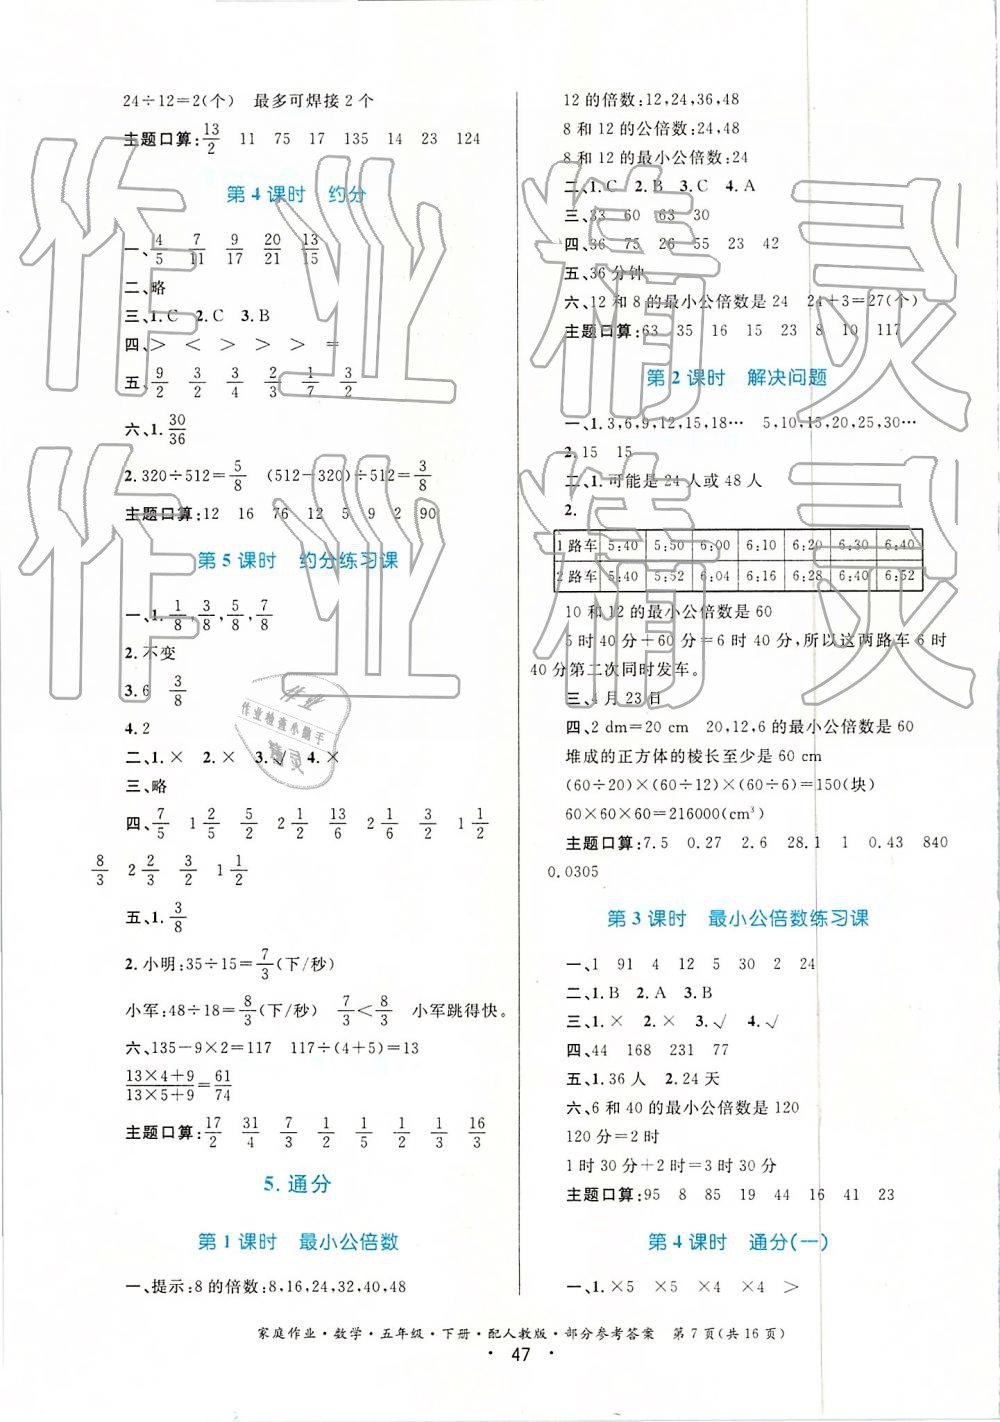 24÷12=2(个)　最多可焊接 2 个
主题口算:13/2　11　75　17　135　14　23　124
第 4 课时　约分
一、4/5　7/11　9/17　20/21　13/15
二、略
三、1.C　2.C　3.B
四、>　<　>　>　>　=
五、9/2　3/2　3/4　2/3　1/7　3/2
六、1.30/36
2.320÷512=5/8　(512-320)÷512=3/8
主题口算:12　16　76　12　5　9　2　90
第 5 课时　约分练习课
一、1.1/8,3/8,5/8,7/8
2.不变
3.6　3/8
4.2
二、1.×　2.×　3.√　4.×
三、略
四、7/5　1 2/5　5/2　2 1/2　13/6　2 1/6　3/2　1 1/2
8/3　2 2/3　3/2　1 1/2
五、1.3/8
2.小明:35÷15=7/3(下/秒)
小军:48÷18=8/3(下/秒)　7/3<8/3　小军跳得快。
六、135-9×2=117　117÷(4+5)=13
(13×4+9)/(13×5+9)=61/74
主题口算:17/2　31/4　7/3　1/2　1/5　1/2　1/3　16/3
5. 通分
第 1 课时　最小公倍数
一、提示:8 的倍数:8,16,24,32,40,48
12 的倍数:12,24,36,48
8 和 12 的公倍数:24,48
8 和 12 的最小公倍数:24
二、1.C　2.B　3.C　4.A
三、33　60　63　30
四、36　75　26　55　23　42
五、36 分钟
六、12 和 8 的最小公倍数是 24　24+3=27(个)
主题口算:63　35　16　15　23　8　10　117
第 2 课时　解决问题
一、1.3,6,9,12,15,18…　5,10,15,20,25,30…
2.15　15
二、1.可能是 24 人或 48 人
2.
1 路车　5:40　5:50　6:00　6:10　6:20　6:30　6:40
2 路车　5:40　5:52　6:04　6:16　6:28　6:40　6:52
10 和 12 的最小公倍数是 60
5 时 40 分+60 分=6 时 40 分,所以这两路车 6 时
40 分第二次同时发车。
三、4 月 23 日
四、2 dm=20 cm　20,12,6 的最小公倍数是 60
堆成的正方体的棱长至少是 60 cm
(60÷20)×(60÷12)×(60÷6)=150(块)
60×60×60=216000(cm³)
主题口算:7.5　0.27　2.6　28.1　1　0.43　840
0.0305
第 3 课时　最小公倍数练习课
一、1　91　4　12　5　30　2　24
二、1.B　2.A　3.B
三、1.×　2.×　3.√　4.√
四、44　168　231　77
五、1.36 人　2.24 天
六、6 和 40 的最小公倍数是 120
120 分=2 时
1 时 30 分+2 时=3 时 30 分
主题口算:95　8　85　19　44　16　41　23
第 4 课时　通分(一)
一、1.×5　×5　×4　×4　>
家庭作业·数学·五年级·下册·配人教版·部分参考答案　第 7 页(共 16 页)
· 47 ·
作业精灵
作业精灵
作业
作业检查小帮手
精灵